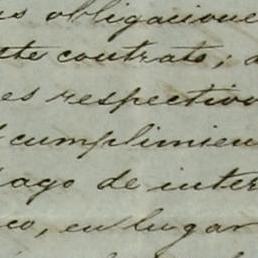 obligacione
ste contrato;
es respectivo
cumplimien
ago de inter
co, en lugar